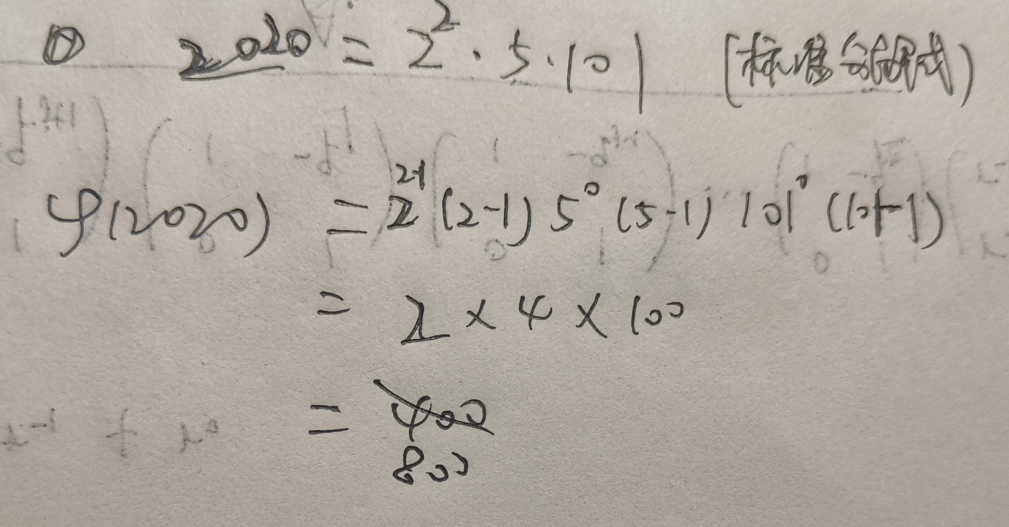 ① 2020 = 2²·5·101 (标准分解式)
φ(2020) = 2²⁻¹(2-1) 5⁰(5-1) 101⁰(101-1)
= 2 × 4 × 100
= 400
800